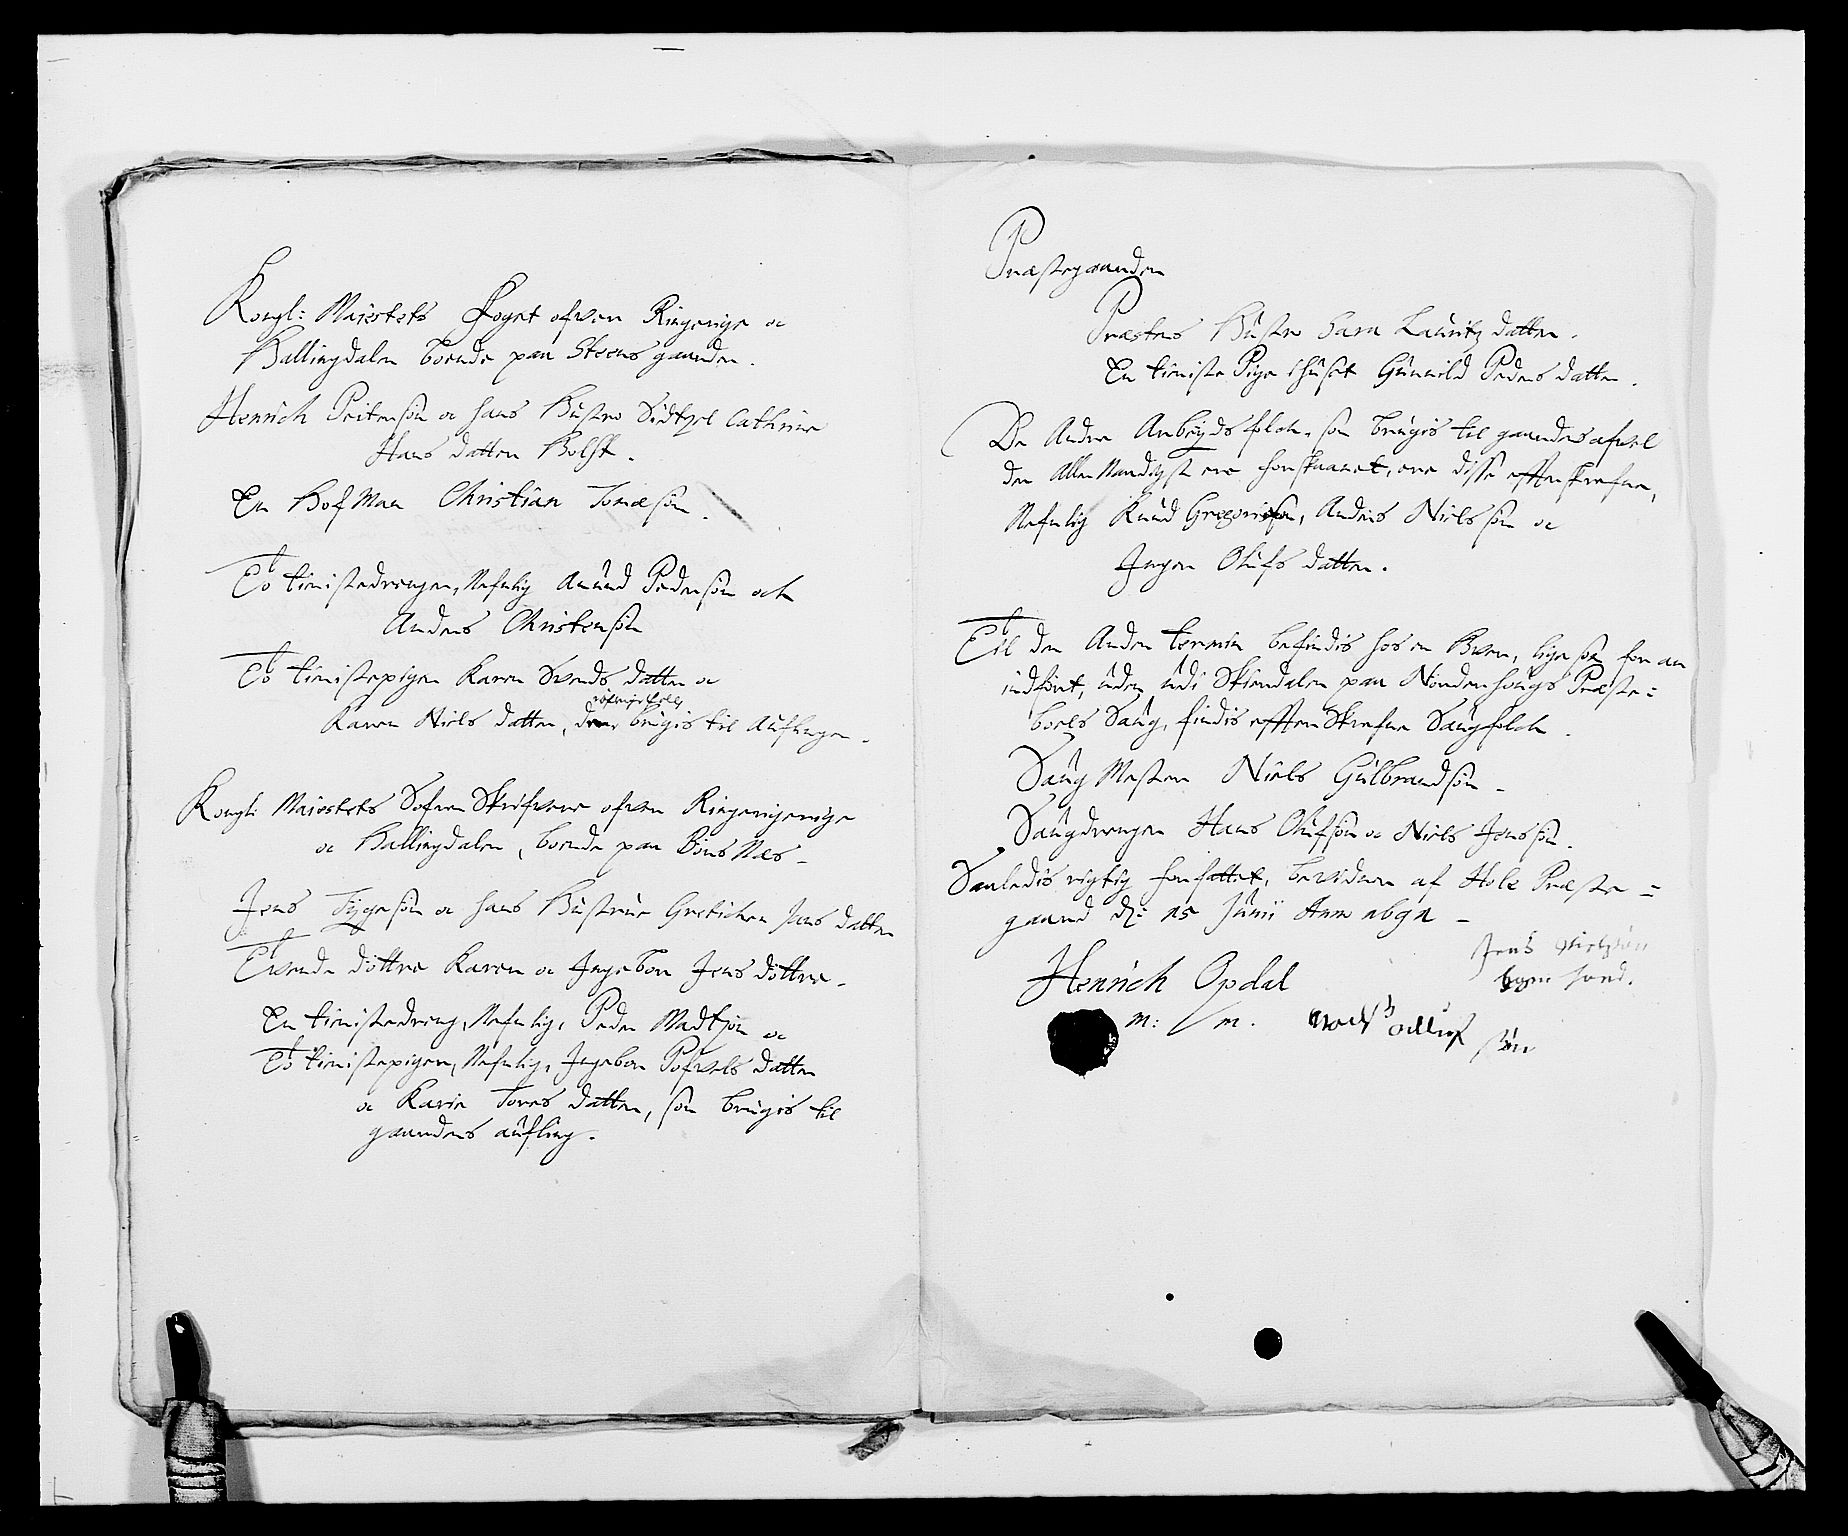 Kongl: Maiestets Foget ofver Ringerige oc
Hallingdalen boende paa Steens gaarden.
Henrich Peitersøn oc hans Hustro Sidtzel Cathrine
Hans datter Holst.
En Hof Man Christian Tomæsøn.
To tienistedrenger, Nefnlig Amund Pedersøn och
Anders Christensøn
To tienistepiger Karen Svends datter oc
Karen Niels datter, der brugis til Auflingen.
Kongl: Maiestets Soren Skrifvere ofver Ringerigerige
oc Hallingdalen, boende paa Bøns Næs -
Jens Tygesøn oc hans Hustrue Gretichen Jens datter
Tvende døttre Karen oc Ingebor Jens døttre.
En tienistedreng, Nefnlig, Peder Madtzøn oc
To tienistepiger, Nefnlig, Ingebor Pofvels datter
oc Karie Tores datter, som brugis til
gaardens aufling.
Præstegaarden
Præstens Hustro Sara Lauritz datter.
En tieniste Pige i huset Gunnild Peders datter.
De Andre Arbeyds folck, som brugis til gaardens afvel
der Aller Naadigst ere forskaanet, ere disse effterskrefne,
Nefnlig Knud Gregorisøn, Anders Nielssøn oc
Inger Olufs datter.
Til den Anden termin befindis hos en hver, lige som for an
indført, uden udi Skiendalen paa Norderhougs Præste=
boels Saug, findis effter Skrefne Saugfolck.
Saug Mester Niels Gulbrandsøn -
Saugdrenger Hans Olufsøn oc Niels Jenssøn.
Saaledis rigtig forfattet, bevidner af Hole Præste=
gaard d: 15 Junii Anno 1691 -
Henrich Opdal
m: / m.
Jens Nielssøn
egen haand.